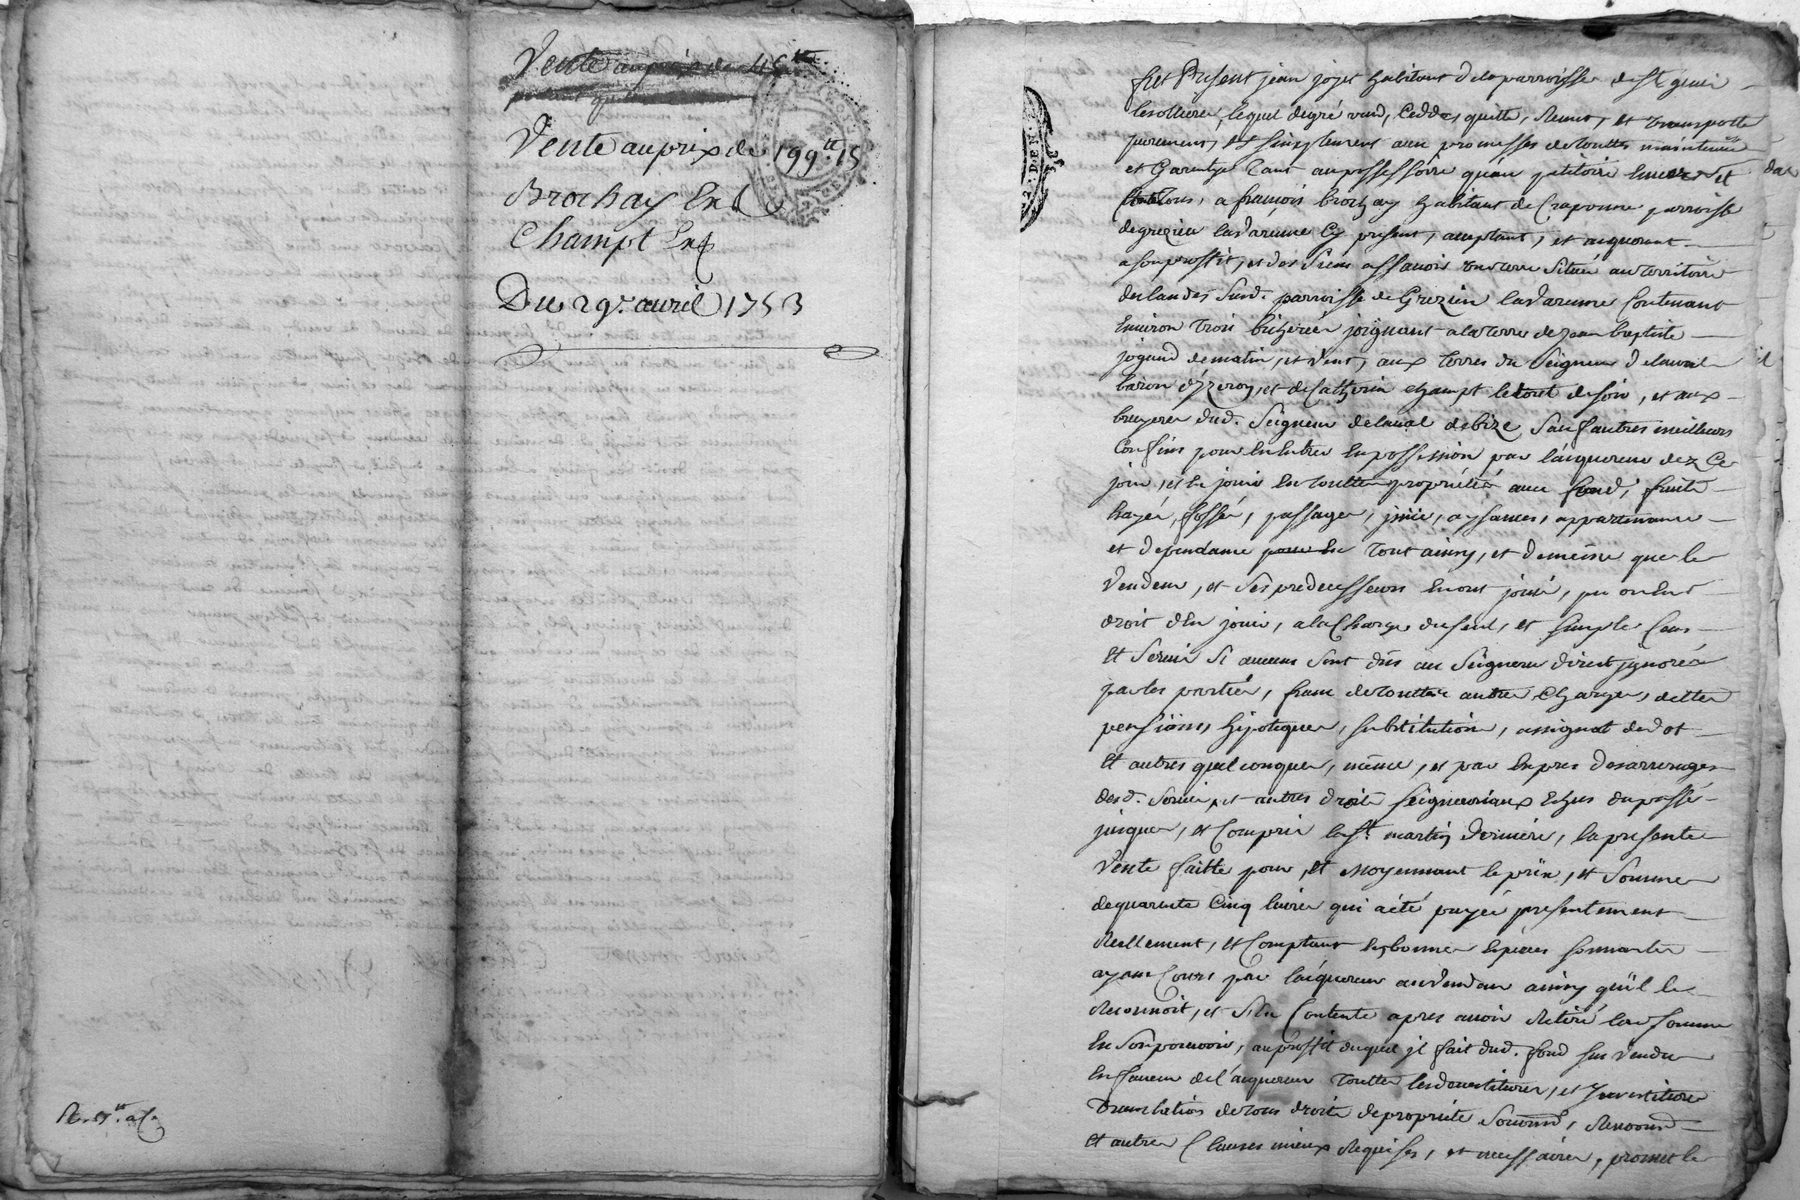 Vente au prix de 45ᵗᵗ
Vente au prix de 199ᵗᵗ 15
Brochay
Champt
Du 29ᵉ avril 1753
fut Present jean jojet habitant dela parroisse de St genis
lesollieres, lequel degré vend, Cedde, quitte, Remet, et transporte
purement, et simplement avec promesses de touttes maintenüe
et Garentye tant au possessoire quau petitoire Envers et
Contre tous, a francois brochay habitant de Craponne parroisse
de grezieu lavarenne Cy present, aceptant, et aquerant
a son proffit, et des siens assavoir une terre Située au territoire
des landes susd. parroisse de Grezieu lavarenne Contenant
Environ trois bicherées joignant a la terre de jean baptiste
jogand de matin, et vent, aux terres du Seigneur Delaval
baron d'yzeron, et de Catherin champt le tout de soir, et aux
bruyeres dud. Seigneur delaval de bize Sauf autres meilleurs
Confins pour En Entrer En possession par l'aquereur dez Ce
jour, et En jouir En toutte propriété avec fond, fruits
hayes, fossés, passages, aysances, appartenance
et dependance tout ainsy, et dememe que le
Vendeur, et Ses predecesseurs En ont jouis, pu ou Eut
droit d'En jouir, a la Charge du seul, et simple Cens
Et Servis Si aucuns Sont dûs au Seigneur direct ignoré
par les parties, franc de touttes autres Charges, dettes
pensions, hipoteques, substitution, assignat de dot
Et autres quelconques, même, et par Exprès des arrerages
desd. Servis, et autres droits Seigneuriaux Echus du passé
jusques, et Compris la St. martin derniere, la presente
Vente faitte pour, Et Moyennant le prix, et Somme
de quarente Cinq livres qui a été payée presentement
Reellement, et Comptant En bonnes Espéces sonnantes
ayant Cours par l'aquereur au Vendeur ainsy qu'il le
Reconnoit, et S'En Contente apres avoir Retiré lad. somme
En Son pouvoir, au proffit duquel il fait dud. fond sus Vendu
En faveur de l'aquereur toutte les devestiture, et Investiture
Translation de tous droits de propriété
Et autres Clauses mieux Requises, et necessaires, promet le